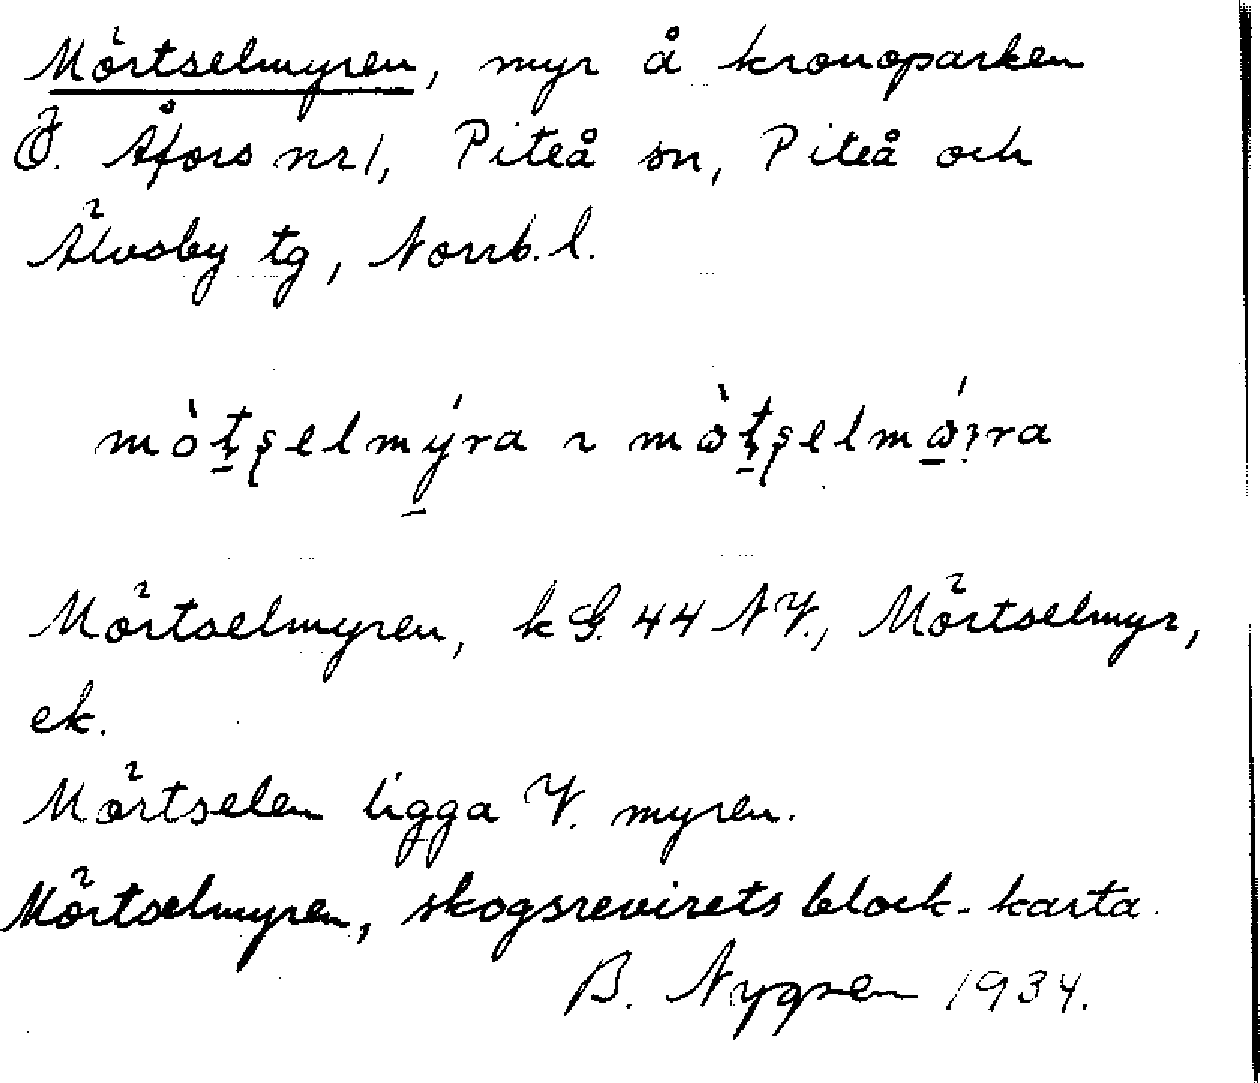 Mörtselmyren, myr å kronoparken
Ö. Åfors nr 1, Piteå sn, Piteå och
Älvsby tg, Norrb. l.
mörtselmyren, kG. 44 NV., Mörtselmyr,
ek.
Mörtselen ligga V. myren.
Mörtselmyren, skogsrevirets block-karta.
B. Nygren 1934.